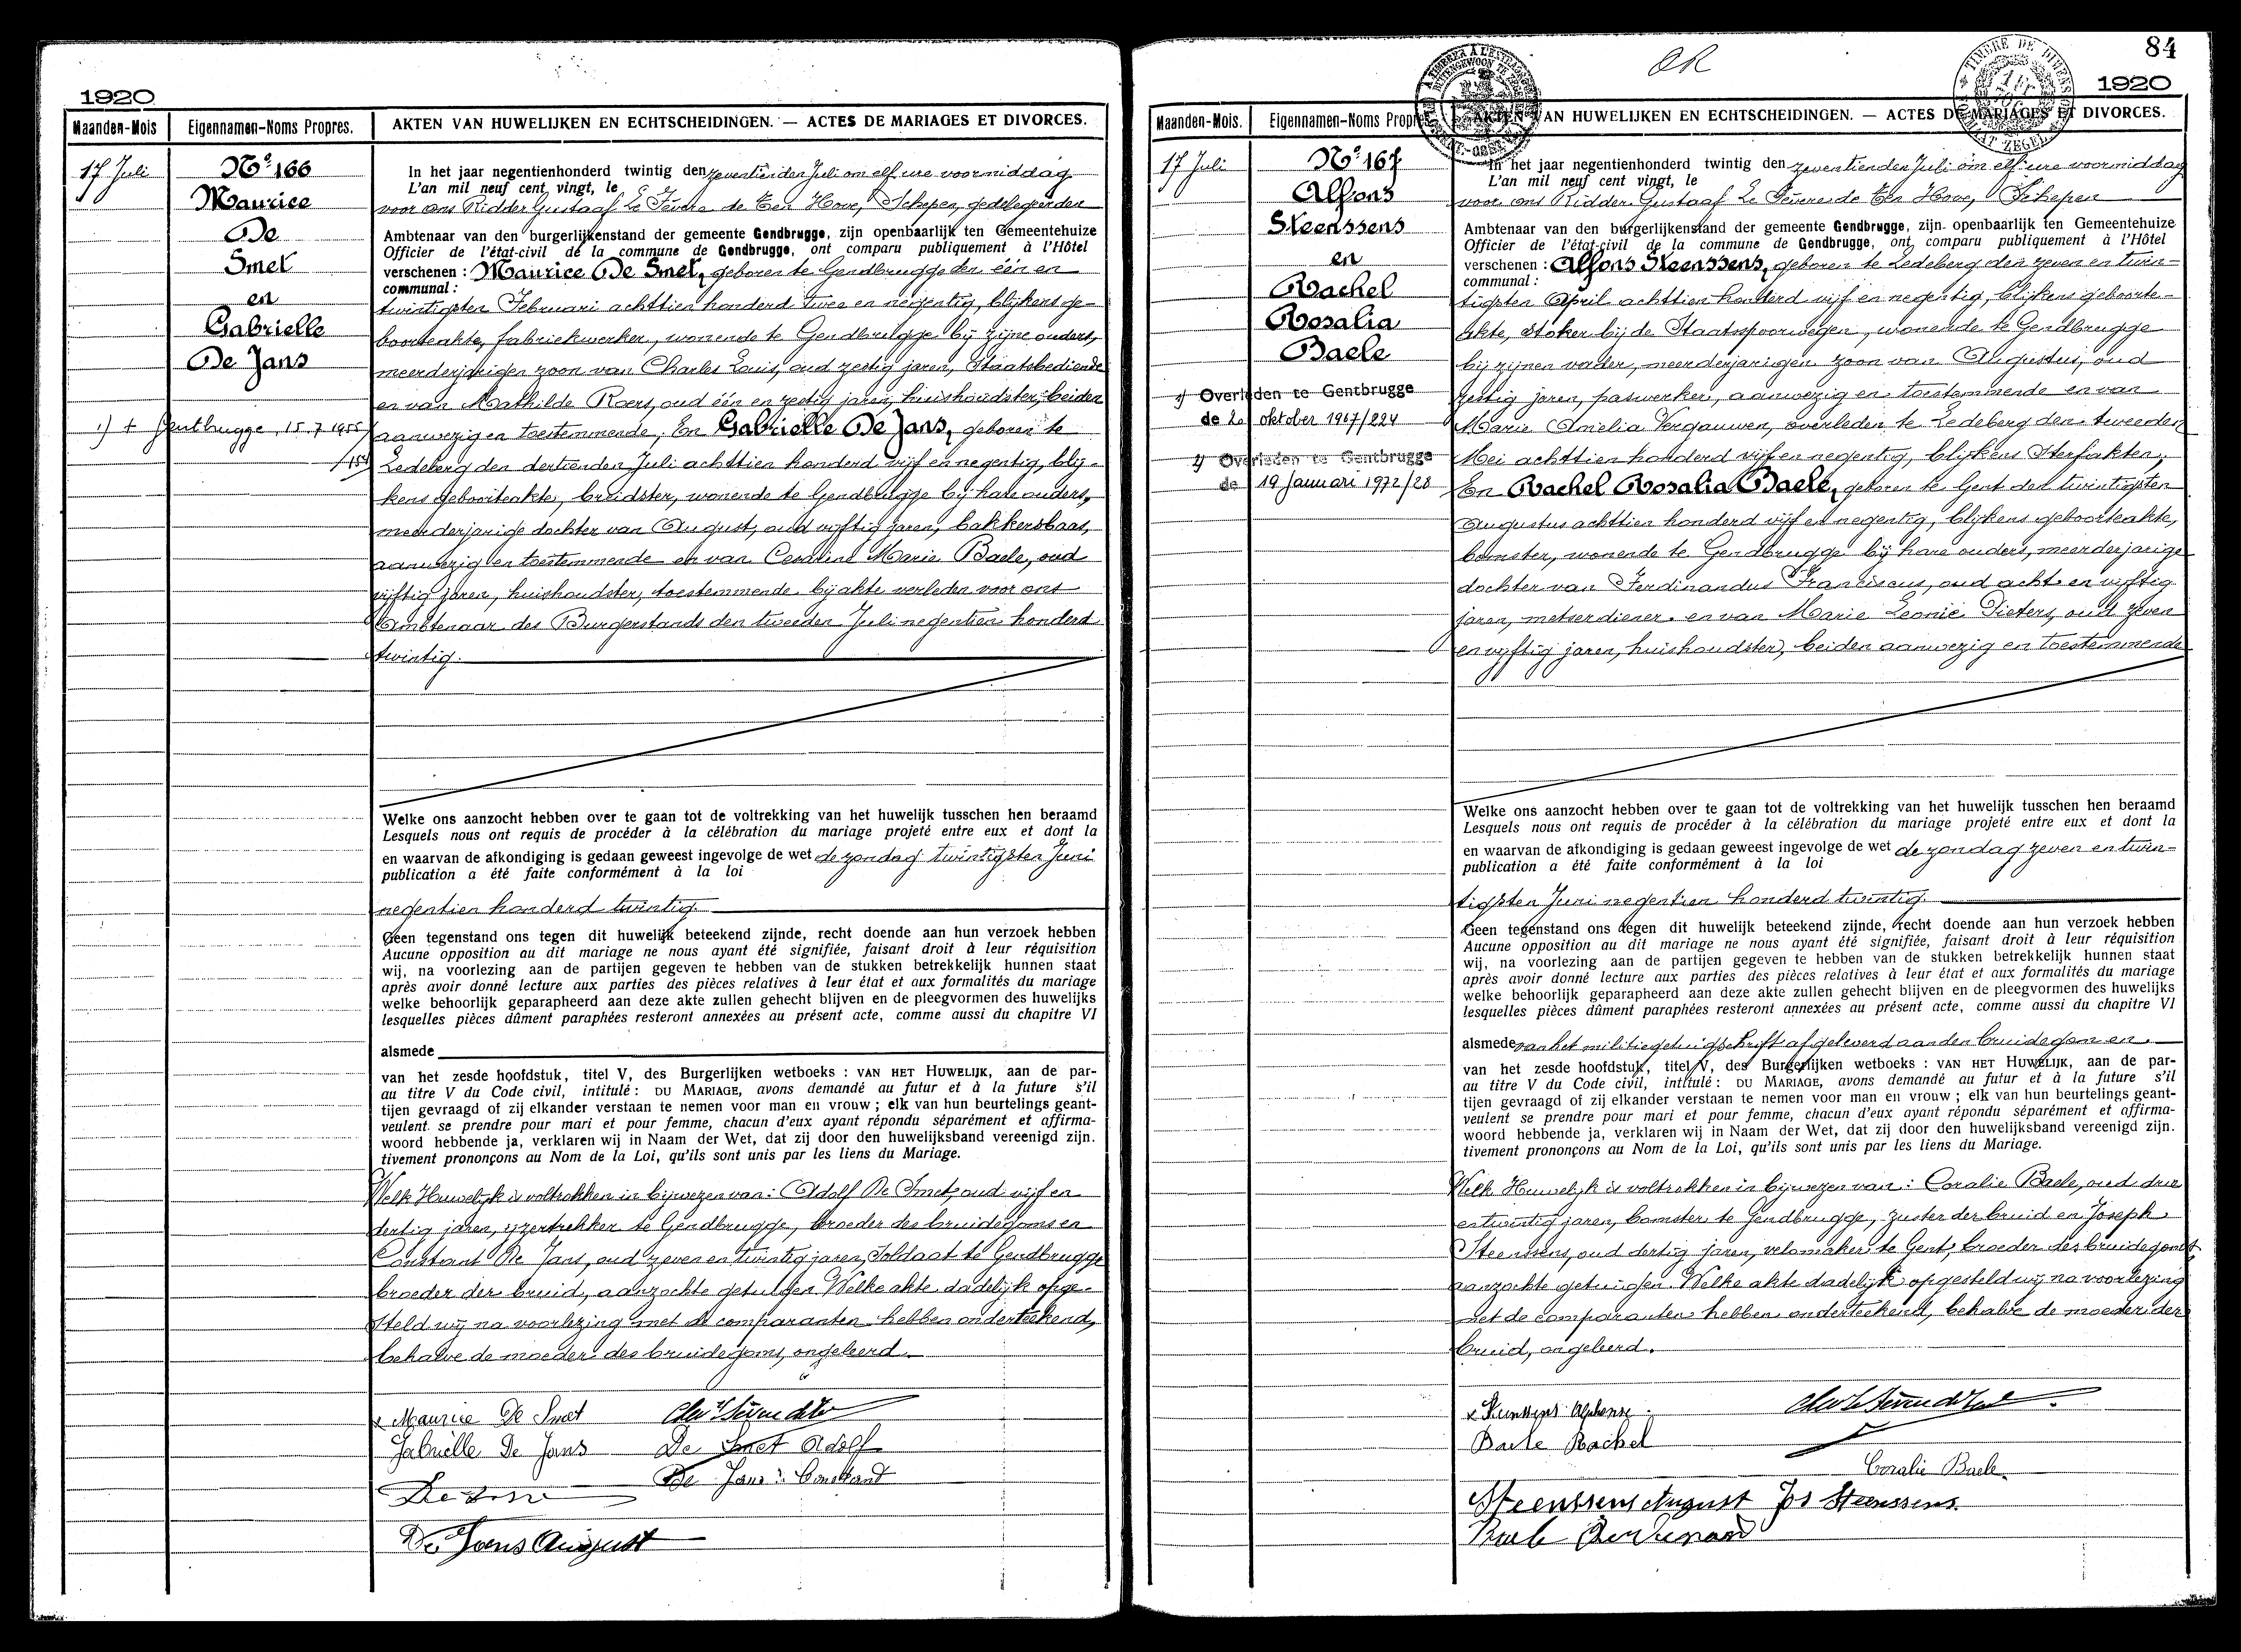 1920
Maanden-Mois Eigennamen-Noms Propres. AKTEN VAN HUWELIJKEN EN ECHTSCHEIDINGEN. — ACTES DE MARIAGES ET DIVORCES.
17 Juli
No. 166
Maurice
De
Smet
en
Gabrielle
De Jans
1) + Gentbrugge, 15.7.1955
/154
In het jaar negentienhonderd twintig den zeventienden Juli om elf ure voormiddag
L'an mil neuf cent vingt, le
voor ons Ridder Gustaaf Le Fèvere de Ten Hove, Schepen, gedelegeerden
Ambtenaar van den burgerlijkenstand der gemeente Gendbrugge, zijn openbaarlijk ten Gemeentehuize
Officier de l'état-civil de la commune de Gendbrugge, ont comparu publiquement à l'Hôtel
verschenen : Maurice De Smet, geboren te Gendbrugge den één en
communal :
twintigsten Februari achttien honderd twee en negentig, blijkens ge-
boorteakte, fabriekwerker, wonende te Gendbrugge bij zijne ouders,
meerderjarigen zoon van Charles Louis, oud zestig jaren, Staatsbediende
en van Mathilde Roers, oud één en zestig jaren, huishoudster, beiden
aanwezig en toestemmende; En Gabrielle De Jans, geboren te
Ledeberg den dertienden Juli achttien honderd vijf en negentig, blij-
kens geboorteakte, breidster, wonende te Gendbrugge bij hare ouders,
meerderjarige dochter van August, oud vijftig jaren, bakkersbaas,
aanwezig en toestemmende en van Coraline Marie Baele, oud
vijftig jaren, huishoudster, toestemmende bij akte verleden voor ons
Ambtenaar des Burgerstands den tweeden Juli negentien honderd
twintig.
Welke ons aanzocht hebben over te gaan tot de voltrekking van het huwelijk tusschen hen beraamd
Lesquels nous ont requis de procéder à la célébration du mariage projeté entre eux et dont la
en waarvan de afkondiging is gedaan geweest ingevolge de wet de zondag twintigsten Juni
publication a été faite conformément à la loi
negentien honderd twintig.
Geen tegenstand ons tegen dit huwelijk beteekend zijnde, recht doende aan hun verzoek hebben
Aucune opposition au dit mariage ne nous ayant été signifiée, faisant droit à leur réquisition
wij, na voorlezing aan de partijen gegeven te hebben van de stukken betrekkelijk hunnen staat
après avoir donné lecture aux parties des pièces relatives à leur état et aux formalités du mariage
welke behoorlijk geparapheerd aan deze akte zullen gehecht blijven en de pleegvormen des huwelijks
lesquelles pièces dûment paraphées resteront annexées au présent acte, comme aussi du chapitre VI
alsmede
van het zesde hoofdstuk, titel V, des Burgerlijken wetboeks : VAN HET HUWELIJK, aan de par-
au titre V du Code civil, intitulé : DU MARIAGE, avons demandé au futur et à la future s'il
tijen gevraagd of zij elkander verstaan te nemen voor man en vrouw ; elk van hun beurtelings geant-
veulent se prendre pour mari et pour femme, chacun d'eux ayant répondu séparément et affirma-
woord hebbende ja, verklaren wij in Naam der Wet, dat zij door den huwelijksband vereenigd zijn.
tivement prononçons au Nom de la Loi, qu'ils sont unis par les liens du Mariage.
Welk Huwelijk is voltrokken in bijwezen van : Adolf De Smet, oud vijf en
dertig jaren, ijzertrekker te Gendbrugge, broeder des bruidegoms en
Constant De Jans, oud zeven en twintig jaren, Soldaat te Gendbrugge
broeder der bruid, aanzochte getuigen. Welke akte dadelijk opge-
steld wij na voorlezing met de comparanten hebben onderteekend,
behalve de moeder des bruidegoms, ongeleerd.
x Maurice De Smet
Gabriëlle De Jans De Smet Adolf
De Jans Constant
De Jans August
84
OR
1920
Maanden-Mois. Eigennamen-Noms Propres. AKTEN VAN HUWELIJKEN EN ECHTSCHEIDINGEN. — ACTES DE MARIAGES ET DIVORCES.
17 Juli
No. 167
Alfons
Steenssens
en
Rachel
Rosalia
Baele
1) Overleden te Gentbrugge
de 20 oktober 1967/224
2) Overleden te Gentbrugge
de 19 Januari 1972/28
In het jaar negentienhonderd twintig den zeventienden Juli om elf ure voormiddag
L'an mil neuf cent vingt, le
voor ons Ridder Gustaaf Le Fèvere de Ten Hove, Schepen
Ambtenaar van den burgerlijkenstand der gemeente Gendbrugge, zijn openbaarlijk ten Gemeentehuize
Officier de l'état-civil de la commune de Gendbrugge, ont comparu publiquement à l'Hôtel
verschenen : Alfons Steenssens, geboren te Ledeberg den zeven en twin-
communal :
tigsten April achttien honderd vijf en negentig, blijkens geboorte-
akte, stoker bij de Staatsspoorwegen, wonende te Gendbrugge
bij zijnen vader, meerderjarigen zoon van Augustus, oud
zestig jaren, paswerker, aanwezig en toestemmende en van
Marie Amelia Vergauwen, overleden te Ledeberg den tweeden
Mei achttien honderd vijf en negentig, blijkens sterfakten;
En Rachel Rosalia Baele, geboren te Gent den twintigsten
Augustus achttien honderd vijf en negentig, blijkens geboorteakte,
bomster, wonende te Gendbrugge bij hare ouders, meerderjarige
dochter van Ferdinandus Franciscus, oud acht en vijftig
jaren, metserdiener en van Marie Leonie Pieters, oud zeven
en vijftig jaren, huishoudster, beiden aanwezig en toestemmende
Welke ons aanzocht hebben over te gaan tot de voltrekking van het huwelijk tusschen hen beraamd
Lesquels nous ont requis de procéder à la célébration du mariage projeté entre eux et dont la
en waarvan de afkondiging is gedaan geweest ingevolge de wet de zondag zeven en twin-
publication a été faite conformément à la loi
tigsten Juni negentien honderd twintig.
Geen tegenstand ons tegen dit huwelijk beteekend zijnde, recht doende aan hun verzoek hebben
Aucune opposition au dit mariage ne nous ayant été signifiée, faisant droit à leur réquisition
wij, na voorlezing aan de partijen gegeven te hebben van de stukken betrekkelijk hunnen staat
après avoir donné lecture aux parties des pièces relatives à leur état et aux formalités du mariage
welke behoorlijk geparapheerd aan deze akte zullen gehecht blijven en de pleegvormen des huwelijks
lesquelles pièces dûment paraphées resteront annexées au présent acte, comme aussi du chapitre VI
alsmede van het militiegetuigschrift afgeleverd aan den bruidegom en
van het zesde hoofdstuk, titel V, des Burgerlijken wetboeks : VAN HET HUWELIJK, aan de par-
au titre V du Code civil, intitulé : DU MARIAGE, avons demandé au futur et à la future s'il
tijen gevraagd of zij elkander verstaan te nemen voor man en vrouw ; elk van hun beurtelings geant-
veulent se prendre pour mari et pour femme, chacun d'eux ayant répondu séparément et affirma-
woord hebbende ja, verklaren wij in Naam der Wet, dat zij door den huwelijksband vereenigd zijn.
tivement prononçons au Nom de la Loi, qu'ils sont unis par les liens du Mariage.
Welk Huwelijk is voltrokken in bijwezen van : Coralie Baele, oud drie
en twintig jaren, bomster te Gendbrugge, zuster der bruid en Joseph
Steenssens, oud dertig jaren, velomaker te Gent, broeder des bruidegoms
aanzochte getuigen. Welke akte dadelijk opgesteld wij na voorlezing
met de comparanten hebben onderteekend, behalve de moeder der
bruid, ongeleerd.
x Steenssens Alphonse.
Baele Rachel
Coralie Baele
Steenssens August Jos Steenssens
Baele Ferdinand